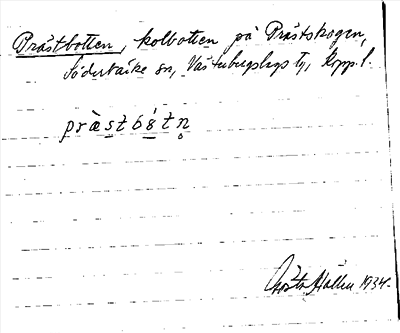 Prästbotten, kolbotten på Prästskogen,
Söderbärke sn, Västerbergslags tg, Kopp.l.
prὰstbśtn̥
Gösta Hallin 1934.